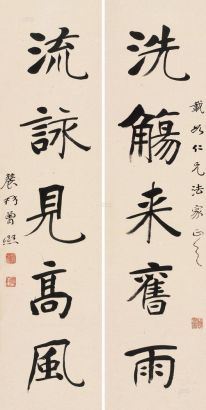 洗觴来舊雨
載如仁兄法家正之
流詠見高風
農髯曾熙